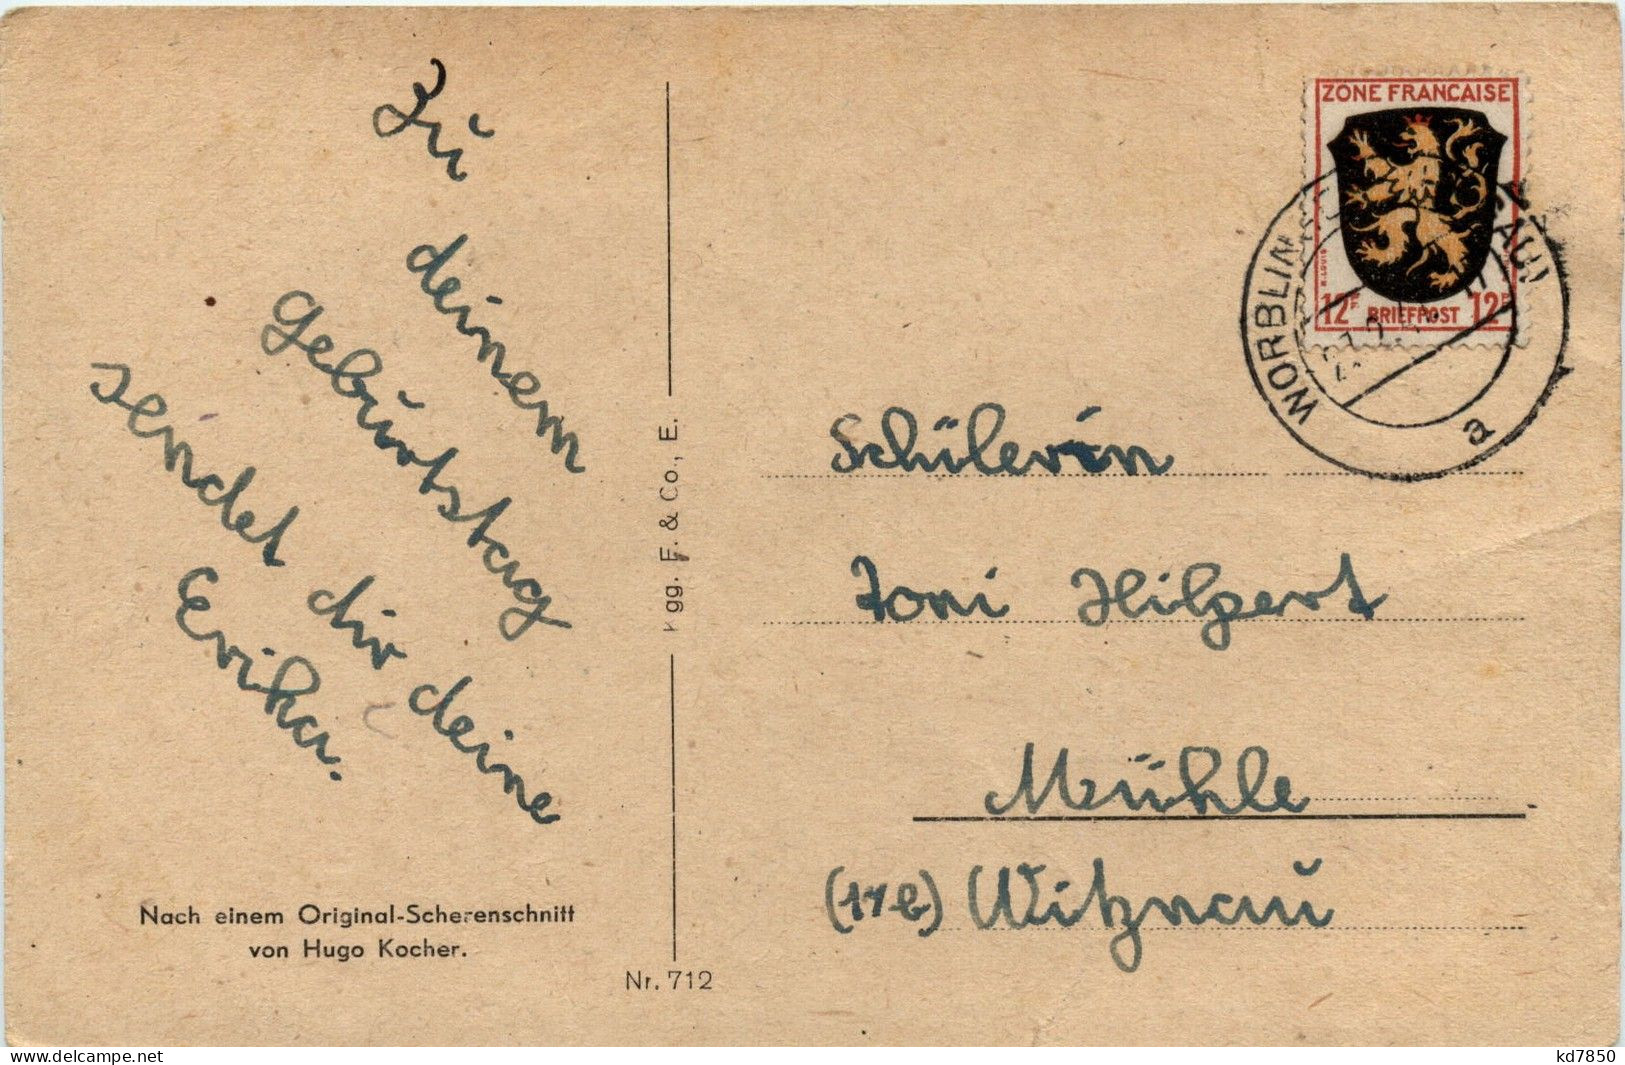 Zu
deinem
Geburtstag
sendet dir deine
Erika.
Nach einem Original-Scherenschnitt
von Hugo Kocher.
gg. E. & Co., E.
Nr. 712
ZONE FRANCAISE
12F BRIEFPOST 12F
WORBLIN
a
Schülerin
Toni Hilpert
Mühle
(17b) Witznau
www.delcampe.net
kd7850